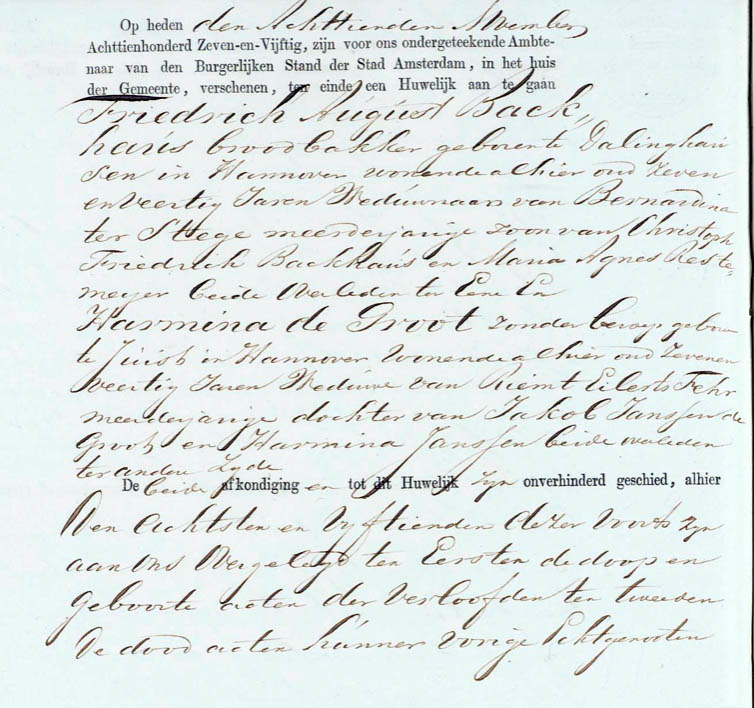 Op heden den Achttienden November
Achttienhonderd Zeven-en-Vijftig, zijn voor ons ondergeteekende Ambte-
naar van den Burgerlijken Stand der Stad Amsterdam, in het huis
der Gemeente, verschenen, ten einde een Huwelijk aan te gaan
Friedrich August Back„
haüs broodbakker geboren te Dalinghau
sen in Hannover wonende alhier oud Zeven
en Veertig Jaren Weduwnaar van Bernardina
ter Stege meerderjarige zoon van Christoph
Friedrich Backhaüs en Maria Agnes Reste=
meyer beide Overleden ter Eene En
Harmina de Groot zonder beroep gebore
te Juist in Hannover Wonende alhier oud Zeven en
Veertig Jaren Weduwe van Riemt Eilerts Fehr
meerderjarige dochter van Jakob Janssen de
Groot en Harmina Janssen beide overleden
ter andere Zyde
De beide afkondiging en tot dit Huwelijk zyn onverhinderd geschied, alhier
Den achtsten en Vyftienden dezer voorts zyn
aan ons Overgelegd ten Eersten de doop en
geboorte acten der Verloofden ten tweeden
de dood acten hunner vorige Echtgenooten